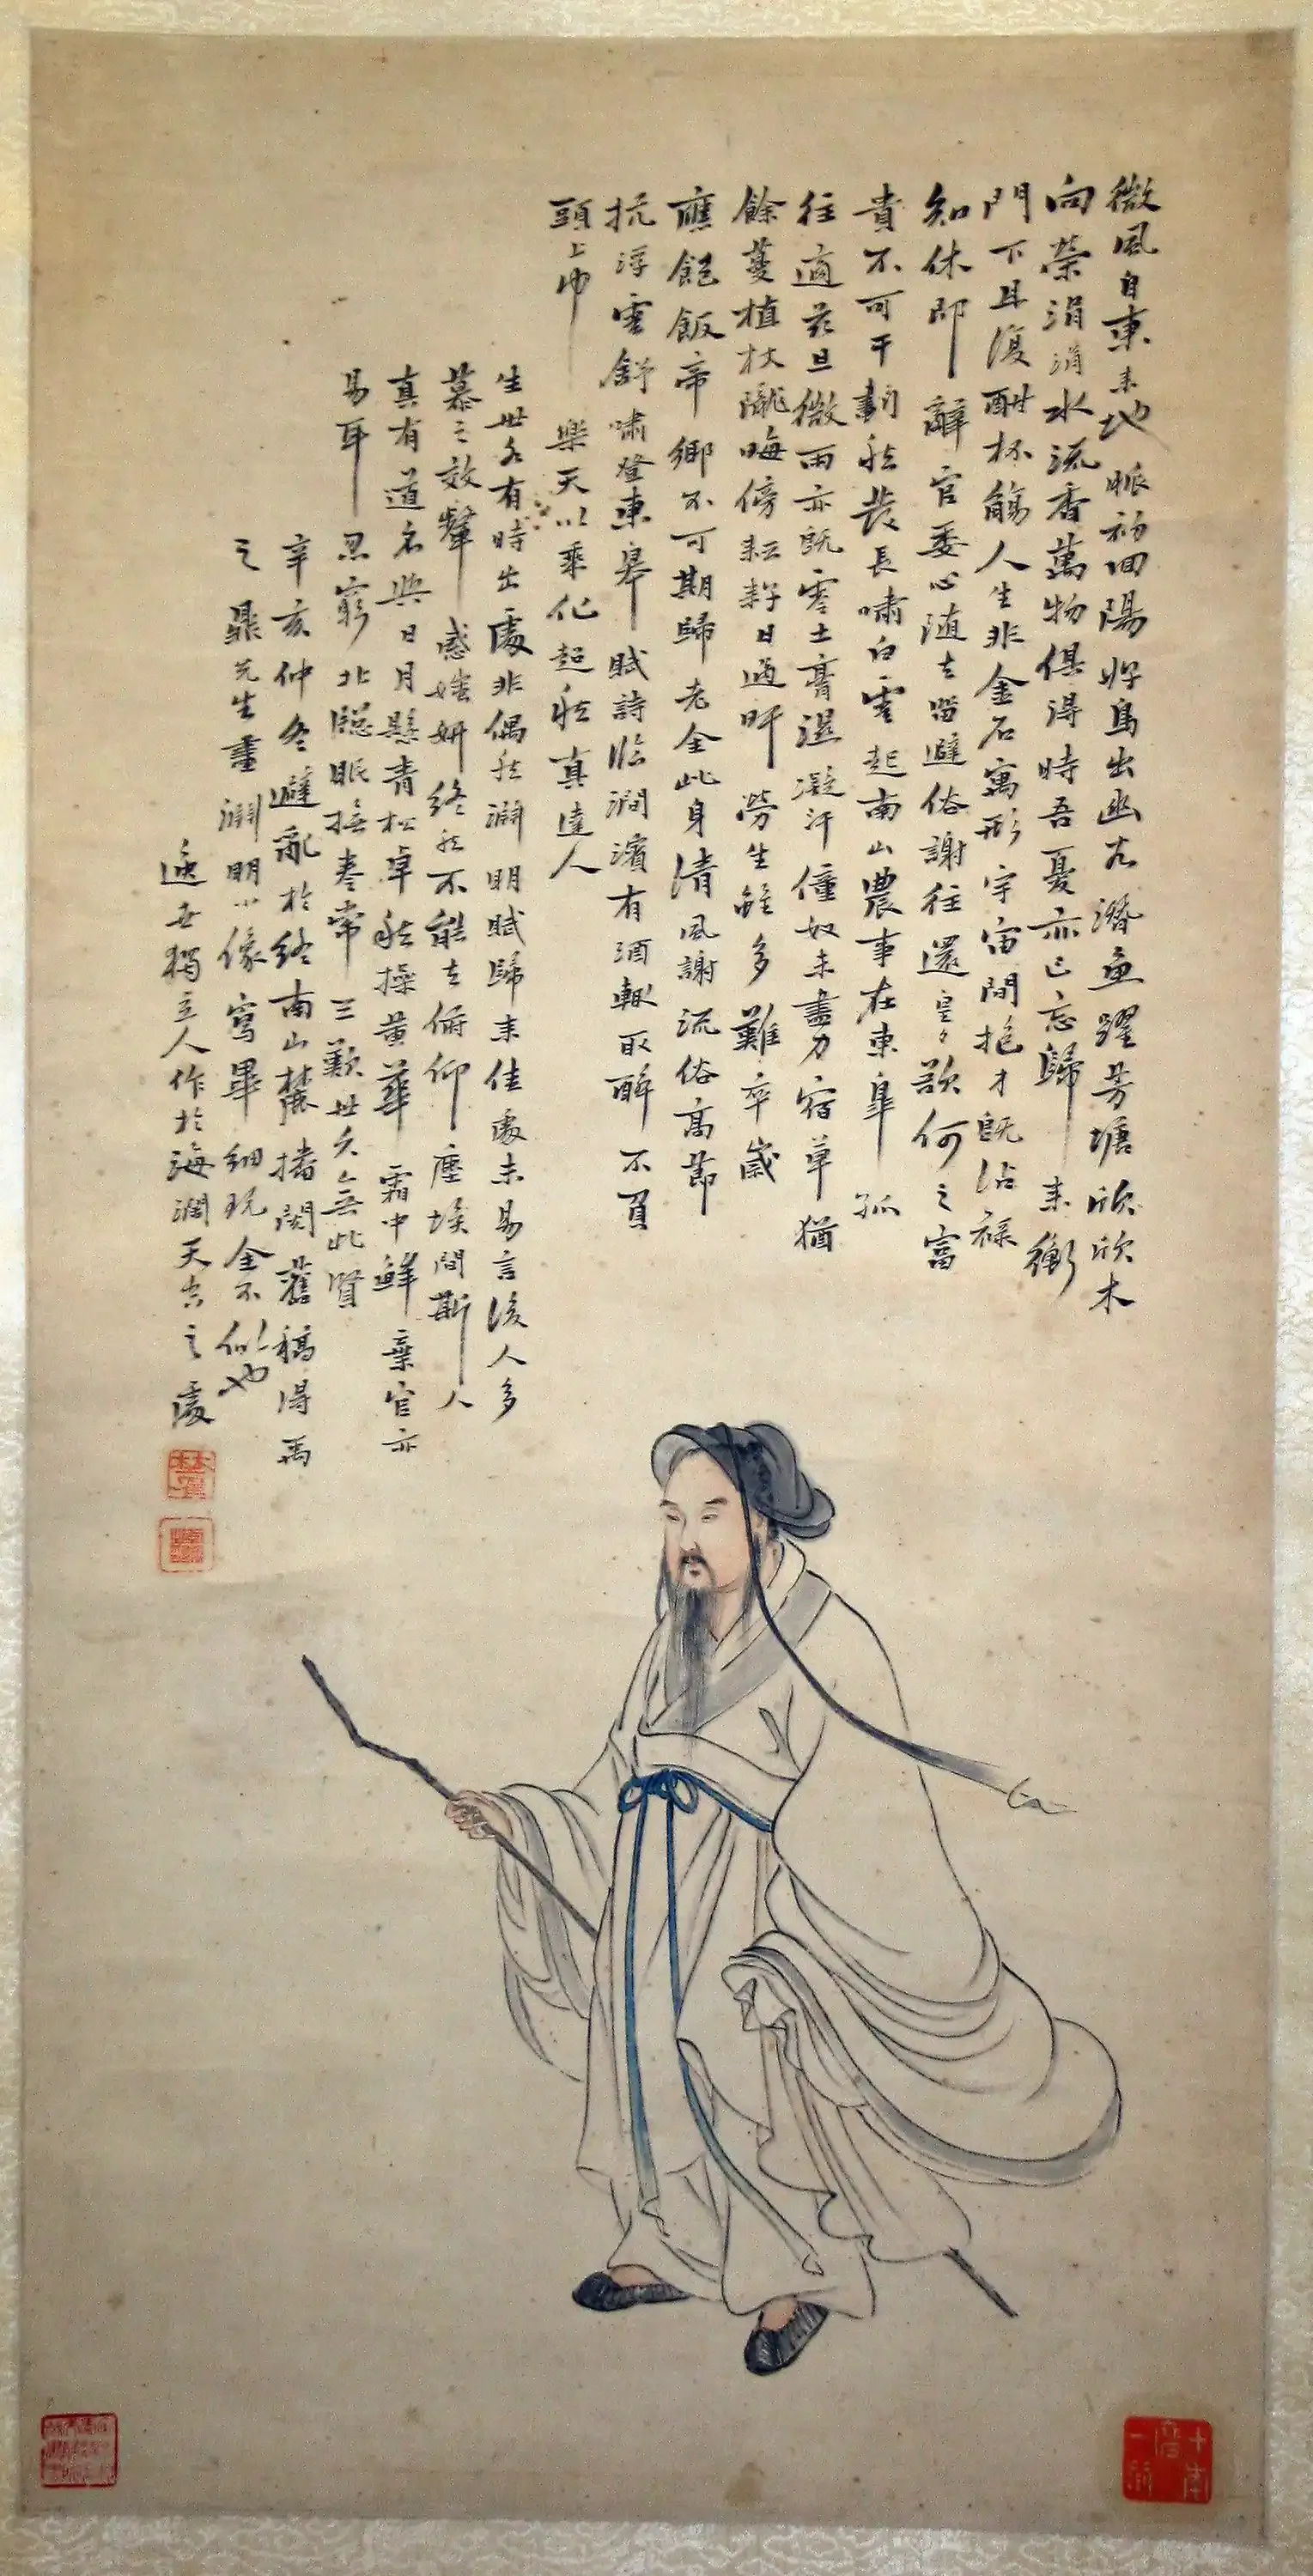 微風自東来地脈初回陽好鳥出幽谷潛魚躍芳塘欣欣木
向榮涓涓水流香萬物俱得時吾憂亦已忘歸来衡
門下且復酣杯觴人生非金石寓形宇宙間抱才既沾祿
知休即辭官委心随去留避俗謝往還皇々欲何之富
貴不可干劃然發長嘯白雲起南山農事在東皐孤
往適茲旦微雨亦既零土膏混凝汗僮奴未盡力宿草猶
餘蔓植杖隴晦傍耘耔日過旰勞生雖多難卒歲
應飽飯帝鄉不可期歸老全此身清風謝流俗高節
抗浮雲舒嘯登東皋賦詩臨澗濱有酒輒取醉不負
頭上巾樂天以乘化超然真達人
生世各有時出處非偶然淵明賦歸来佳處未易言後人多
慕之效顰惑媸妍終然不能去俯仰塵埃間斯人
真有道名與日月懸青松卓然操黄華霜中鮮棄官亦
易耳忍窮北牎眠撫卷常三歎世久無此賢
辛亥仲冬避亂於終南山麓搔閱舊稿得禹
之鼎先生畫淵明小像寫畢細玩全不似也
遯世獨立人作於海濶天空之處